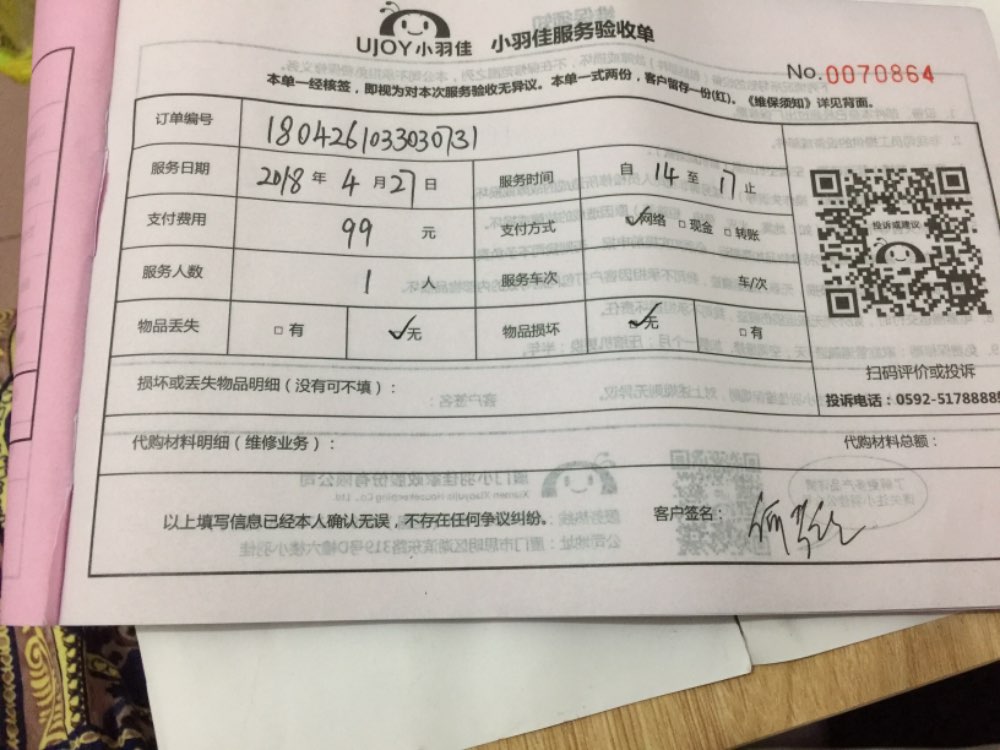 UJOY小羽佳 小羽佳服务验收单
No.0070864
本单一经核签，即视为对本次服务验收无异议。本单一式两份，客户留存一份(红)。《维保须知》详见背面。
订单编号 180426103303073​1
服务日期 2018 年 4 月 27 日 服务时间 自 14 至 17 止
支付费用 99 元 支付方式 ☑网络 □现金 □转账
投诉或建议
服务人数 1 人 服务车次 车/次
物品丢失 □有 ☑无 物品损坏 ☑无 □有
扫码评价或投诉
损坏或丢失物品明细（没有可不填）：
投诉电话：0592-5178888
代购材料明细（维修业务）： 代购材料总额：
以上填写信息已经本人确认无误，不存在任何争议纠纷。 客户签名：